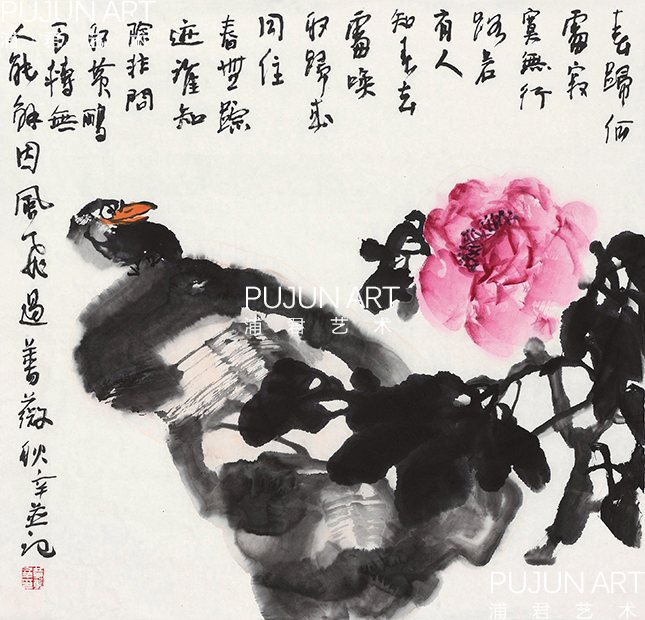 春歸何
處寂
寞無行
路若
有人
知春去
處喚
取歸來
同住
春無踪
迹誰知
除非問
取黄鸝
百轉無
人能解因風飛過薔薇秋辛并记
PUJUN ART
浦君艺术
PUJUN ART
浦君艺术
PUJUN ART
浦君艺术